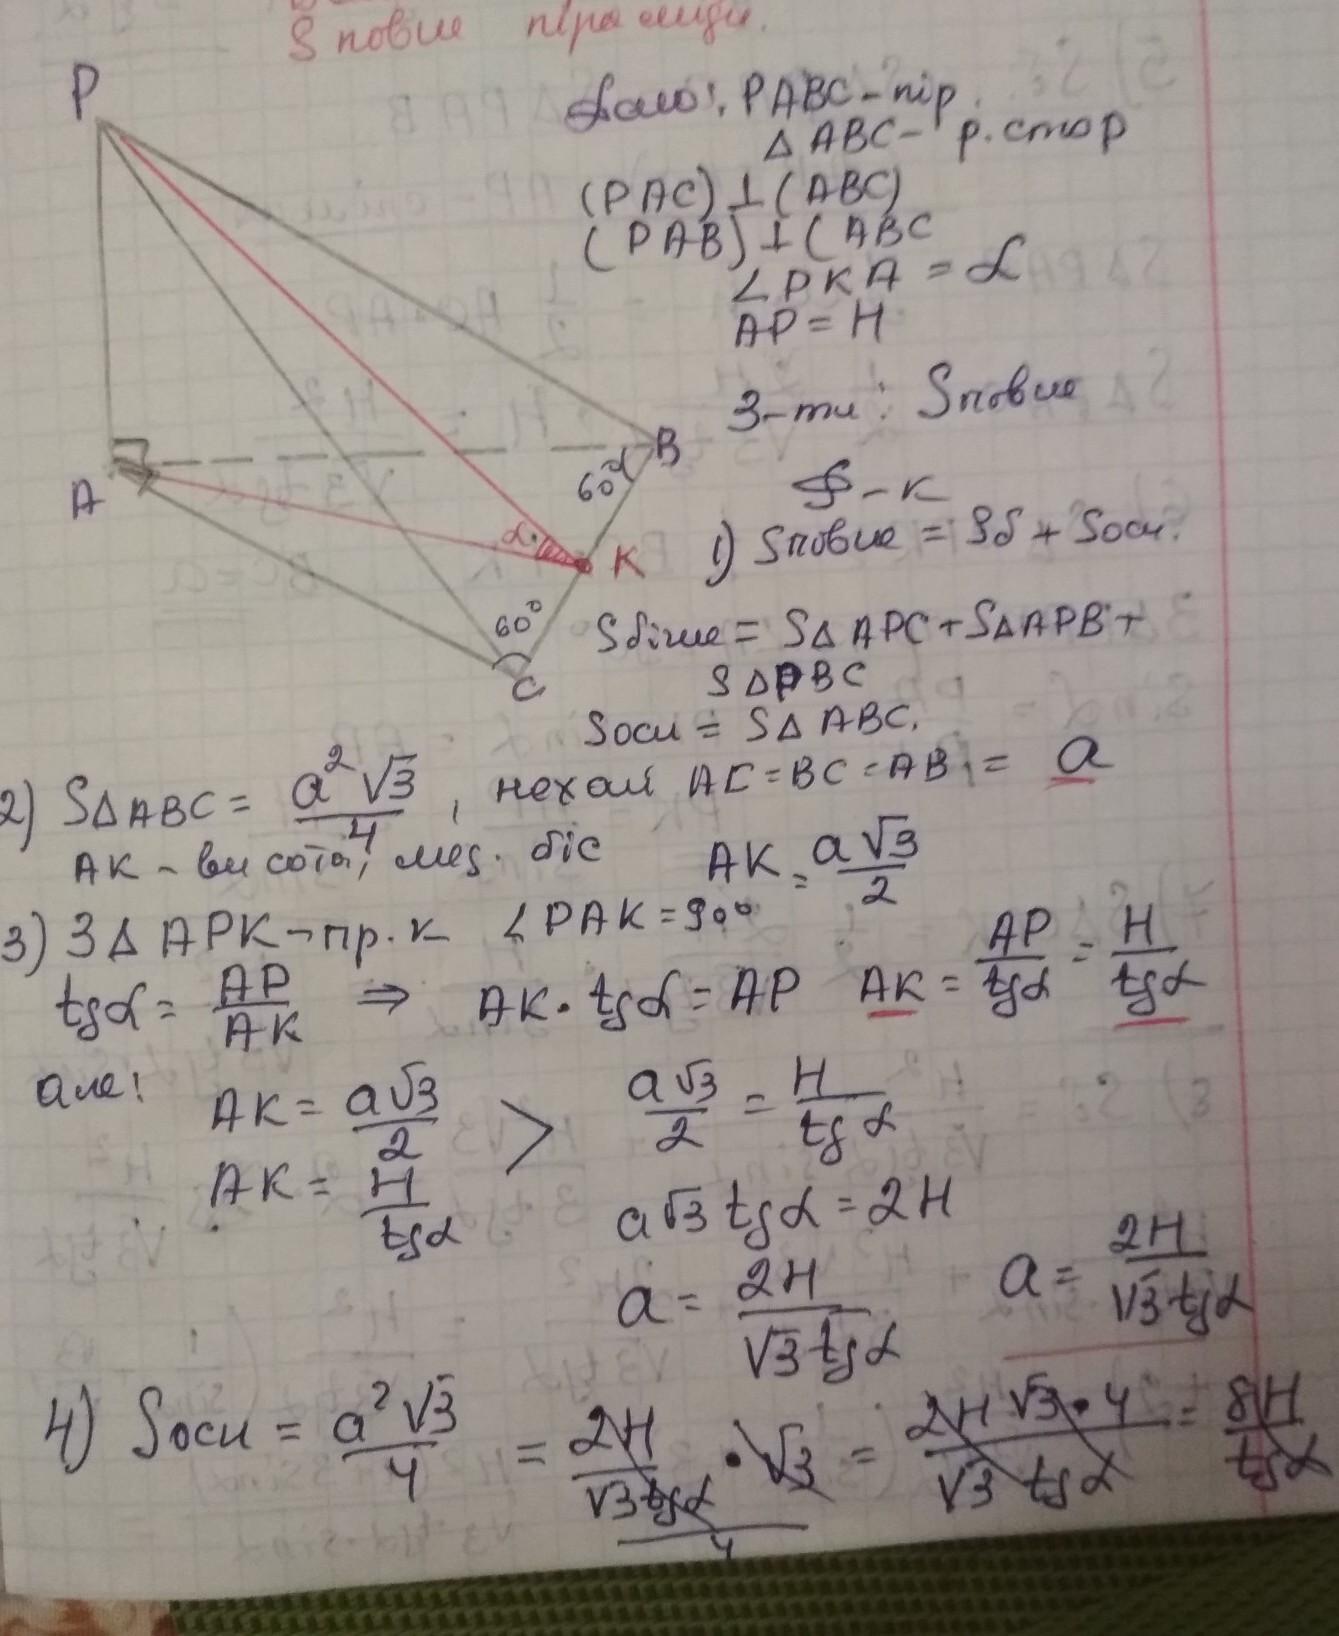 S повне піраміди.
P
Дано: PABC - пір.
Δ ABC - р. стор
(PAC) ⊥ (ABC)
(PAB) ⊥ (ABC
∠PKA = α
AP = H
З-ти: Sповне
A
B
60°
α
K
60°
C
- к
1) Sповне = Sб + Sосн.
Sбічне = SΔ APC + SΔ APB +
SΔ PBC
Sосн = SΔ ABC.
2) SΔ ABC = a²√3/4, нехай AC = BC = AB = a
AK - висота, мед. біс AK = a√3/2
3) З Δ APK - пр. к ∠PAK = 90°
tgα = AP/AK ⇒ AK · tgα = AP AK = AP/tgα = H/tgα
але:
AK = a√3/2 > a√3/2 = H/tgα
AK = H/tgα
a√3 tgα = 2H
a = 2H/√3 tgα a = 2H/√3 tgα
4) Sосн = a²√3/4 = 2H/√3 tgα · √3/4 = 2H√3·4/√3 tgα = 8H/tgα